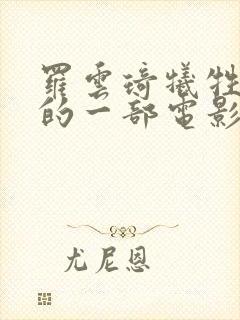 羅雲琦犧牲
的一部電影
尤尼恩